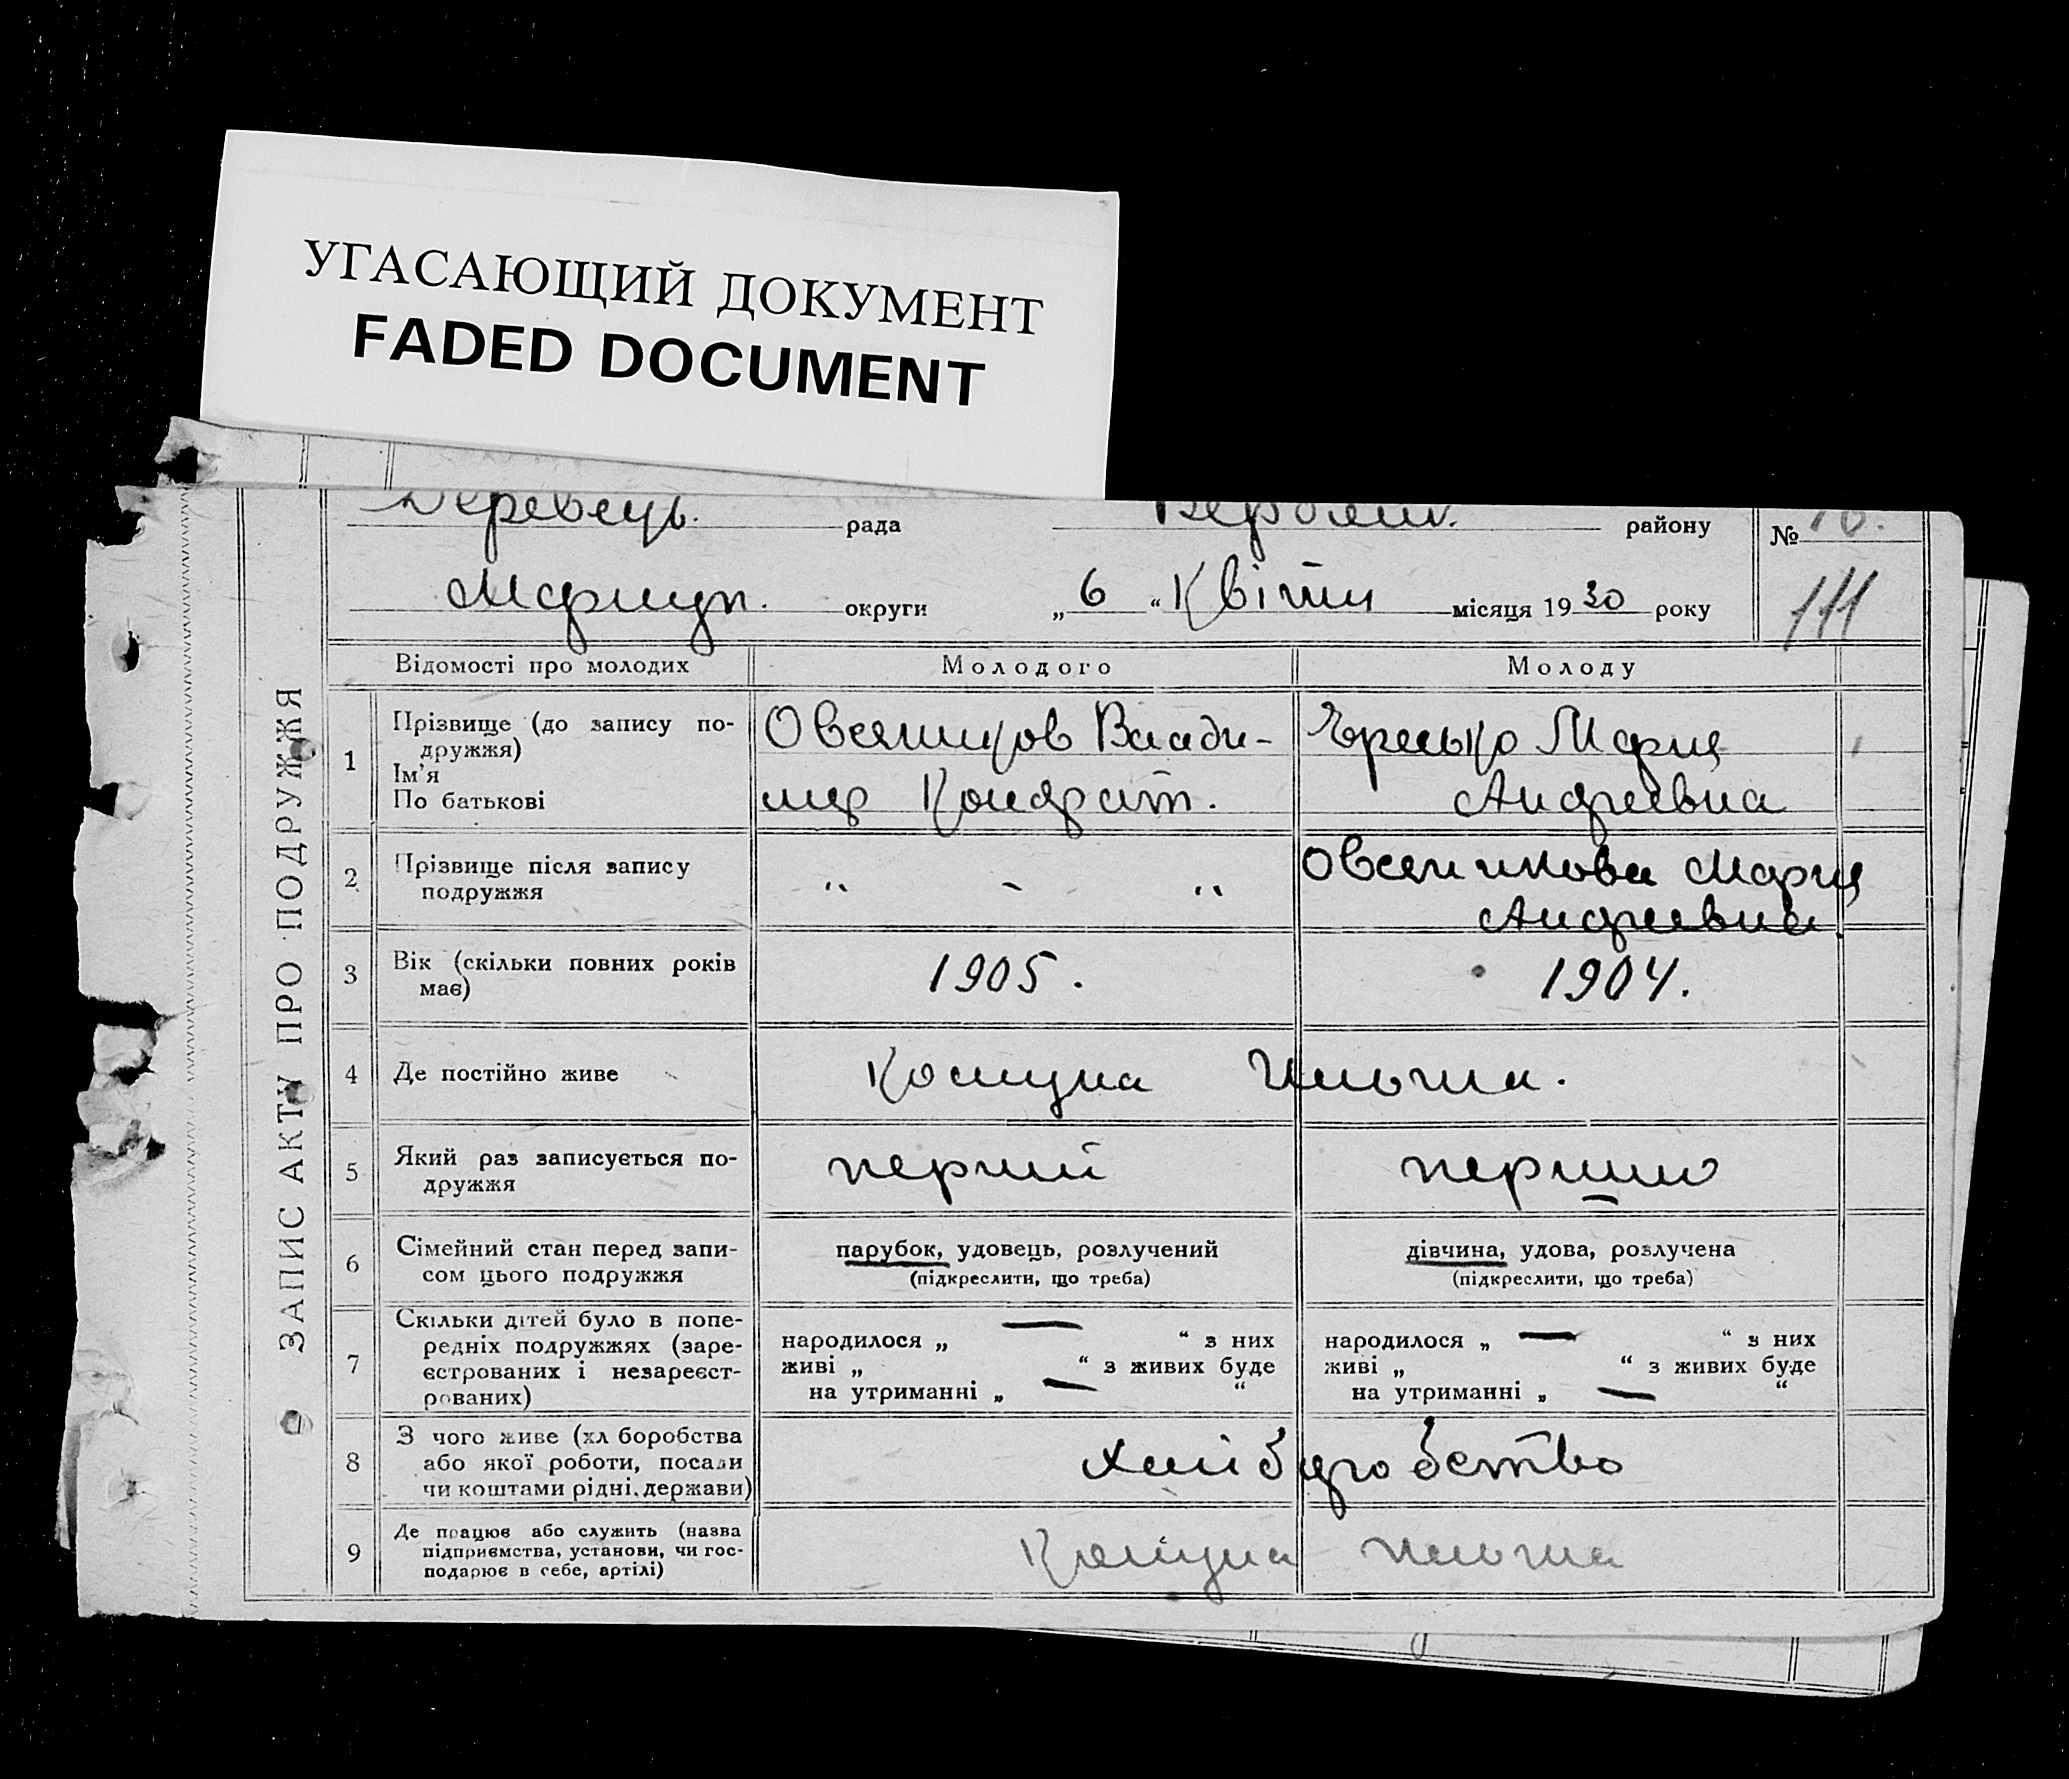 УГАСАЮЩИЙ ДОКУМЕНТ
FADED DOCUMENT
ЗАПИС АКТУ ПРО ПОДРУЖЖЯ
рада района району №
Мариуп. округи „ 6 “ Квітни місяця 1930 року 111
Відомості про молодих Молодого Молоду
1 Прізвище (до запису по-
дружжя)
Ім'я
По батькові
Овсяников Влади-
мир Кондрат.
Мария
Андреевна
2 Прізвище після запису
подружжя
„ - „
Овсяникова Мария
Андреевна.
3 Вік (скільки повних років
має)
1905. 1904.
4 Де постійно живе
Комуна Ильича.
5 Який раз записується по-
дружжя
перший першио
6 Сімейний стан перед запи-
сом цього подружжя
парубок, удовець, розлучений
(підкреслити, що треба)
дівчина, удова, розлучена
(підкреслити, що треба)
7 Скільки дітей було в попе-
редніх подружжях (заре-
єстрованих і незареєст-
рованих)
народилося „ — “ з них
живі „ “ з живих буде
на утриманні „ — “
народилося „ — “ з них
живі „ “ з живих буде
на утриманні „ — “
8 З чого живе (хліборобства
або якої роботи, посади
чи коштами рідні, держави)
9 Де працює або служить (назва
підприємства, установи, чи гос-
подарює в себе, артілі)
Комуна Ильича